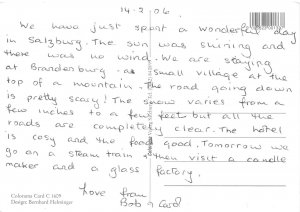 14-2-06.
We have just spent a wonderful day
in Salzburg. The sun was shining and
there was no wind. We are staying
at Brandenburg - a small village at the
top of a mountain. The road going down
is pretty scary! The snow varies from a
few inches to a few feet but all the
roads are completely clear. The hotel
is cosy and the food good. Tomorrow we
go on a steam train & then visit a candle
maker and a glass factory.
Love from
Bob & Carol
Colorama Card C 1609
Design: Bernhard Helminger